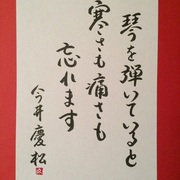 琴を弾いていると
寒さも痛さも
忘れます
今井慶松